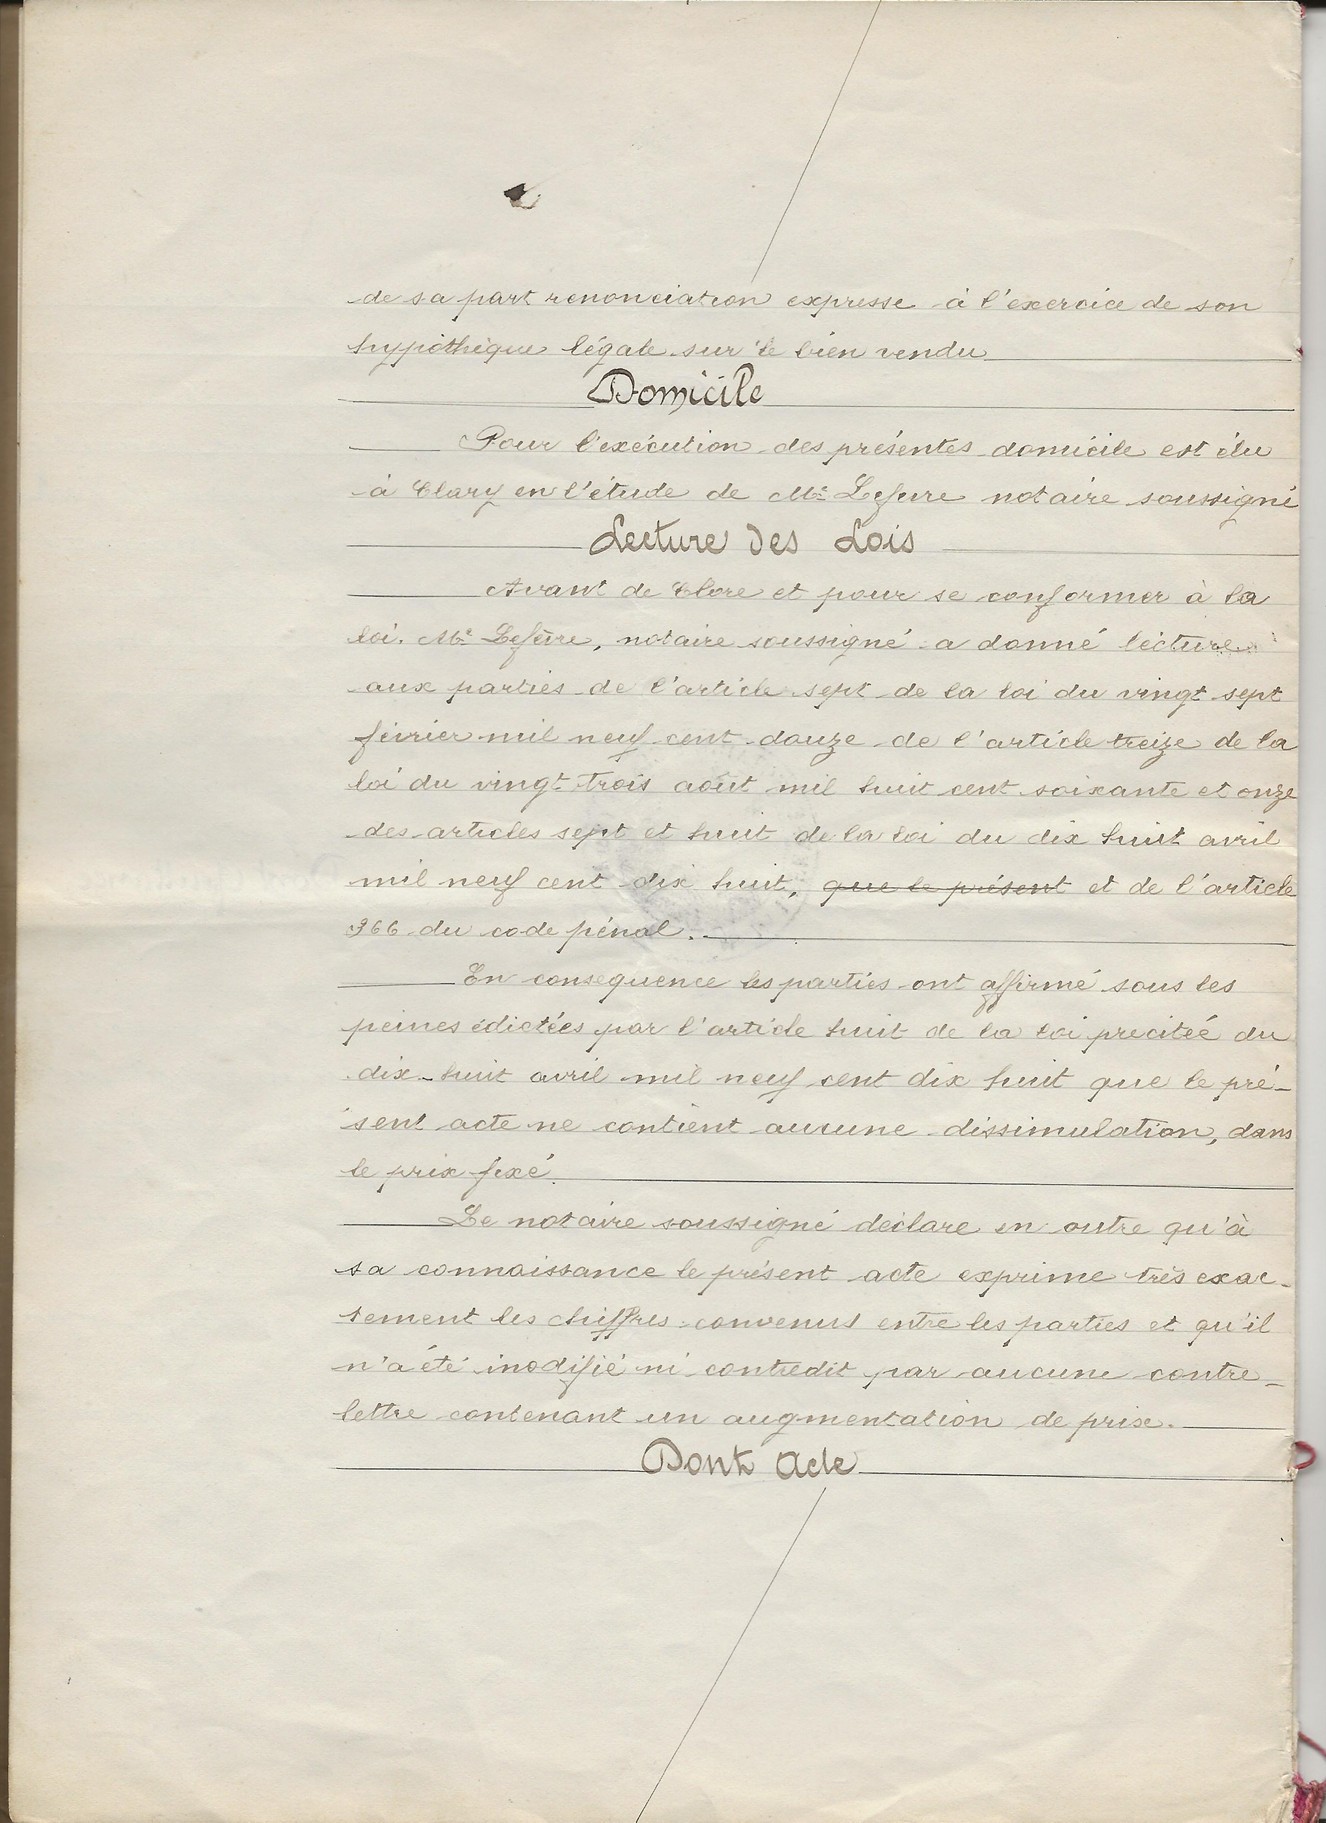 de sa part renonciation expresse à l'exercice de son
hypothèque légale sur le bien vendu
Domicile
Pour l'exécution des présentes domicile est élu
à Clary en l'étude de Me Lefevre notaire soussigné
Lecture des Lois
Avant de Clore et pour se conformer à la
loi. Me Lefèvre, notaire soussigné a donné lecture
aux parties de l'article sept de la loi du vingt sept
février mil neuf cent douze de l'article treize de la
loi du vingt trois août mil huit cent soixante et onze
des articles sept et huit de la loi du dix huit avril
mil neuf cent dix huit, que le présent et de l'article
366 du code pénal.
En consequence les parties ont affirmé sous les
peines édictées par l'article huit de la loi precitée du
dix-huit avril mil neuf cent dix huit que le pré-
sent acte ne contient aucune dissimulation, dans
le prix fixé.
Le notaire soussigné déclare en outre qu'à
sa connaissance le présent acte exprime très exac-
tement les chiffres convenus entre les parties et qu'il
n'a été modifié ni contredit par aucune contre-
lettre contenant un augmentation de prix.
Dont Acte